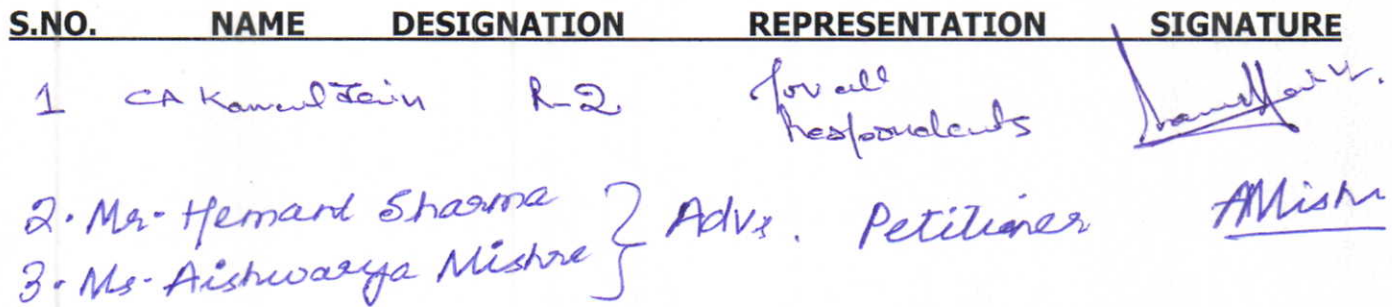 S.NO. NAME DESIGNATION REPRESENTATION SIGNATURE
1 CA Kamal Jain R-2 for all
Respondents
2. Mr. Hemant Sharma } Advs. Petitioner AMishr
3. Ms. Aishwarya Mishra